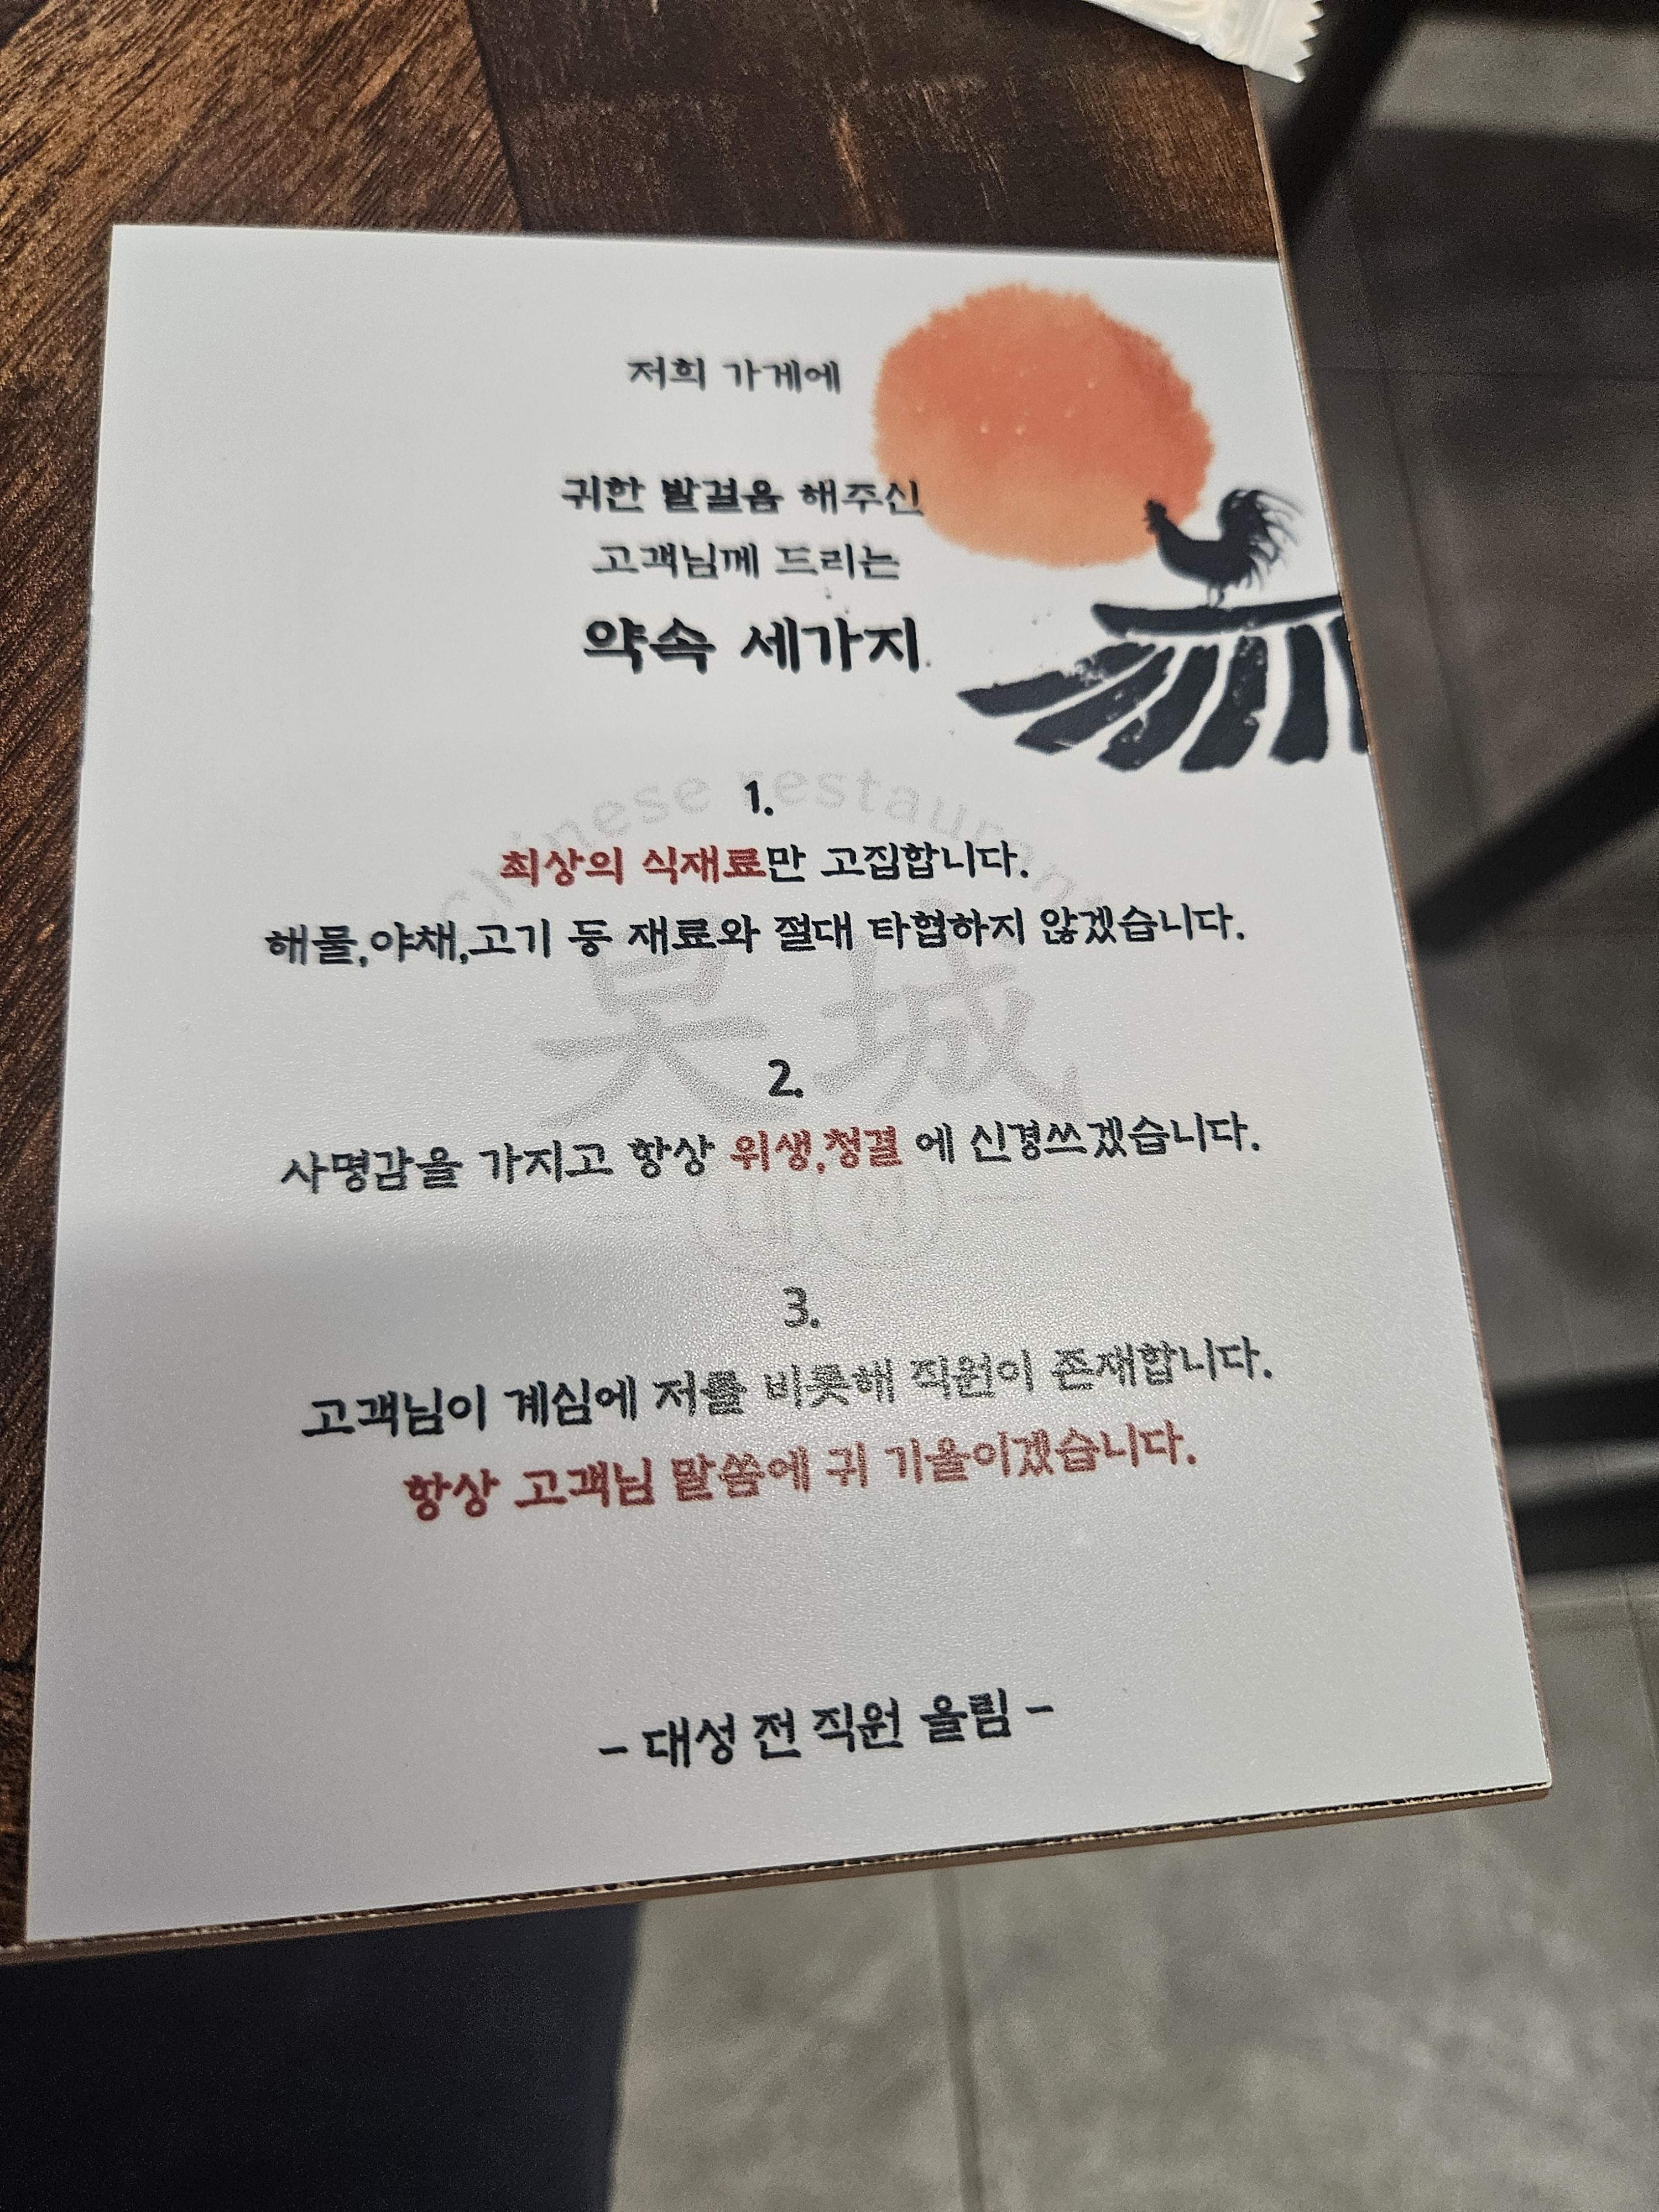 저희 가게에
귀한 발걸음 해주신
고객님께 드리는
약속 세가지
Chinese restaurant
1.
최상의 식재료만 고집합니다.
해물,야채,고기 등 재료와 절대 타협하지 않겠습니다.
2.
사명감을 가지고 항상 위생,청결 에 신경쓰겠습니다.
3.
고객님이 계심에 저를 비롯해 직원이 존재합니다.
항상 고객님 말씀에 귀 기울이겠습니다.
- 대성 전 직원 올림 -